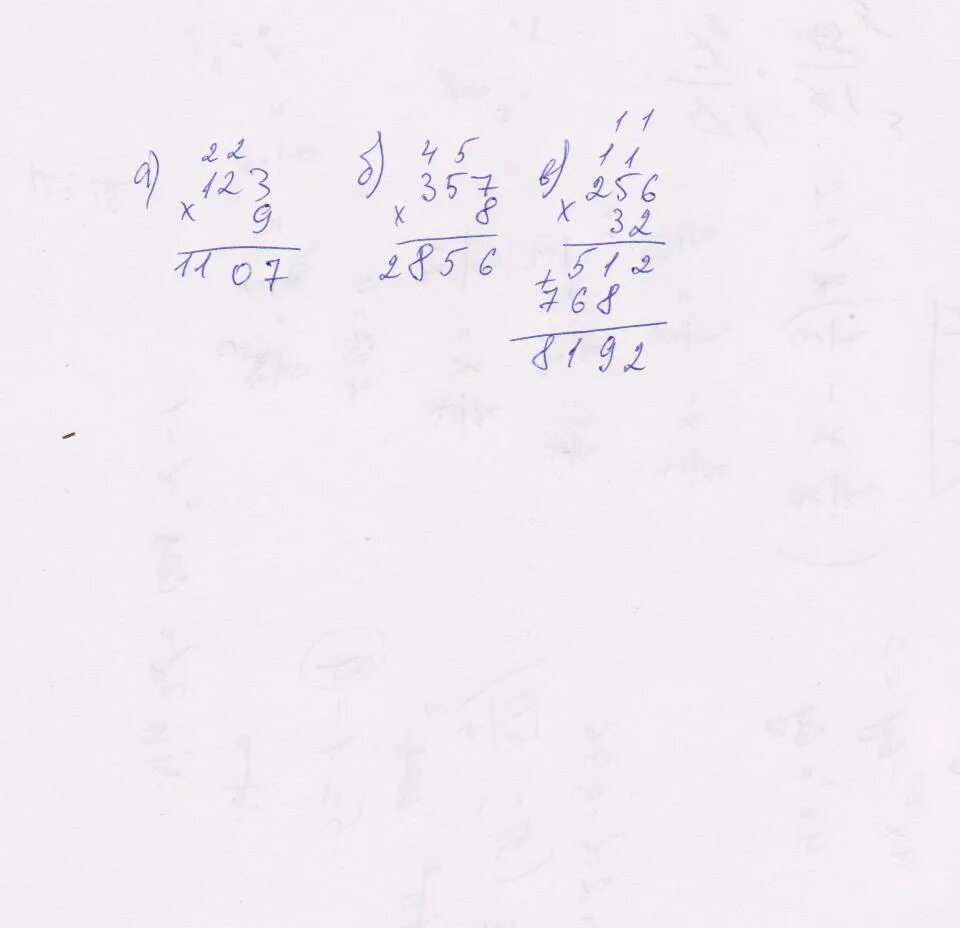 а) 22
123
× 9
1107
б) 4 5
357
× 8
2856
в) 11
11
256
× 32
512
+
768
8192